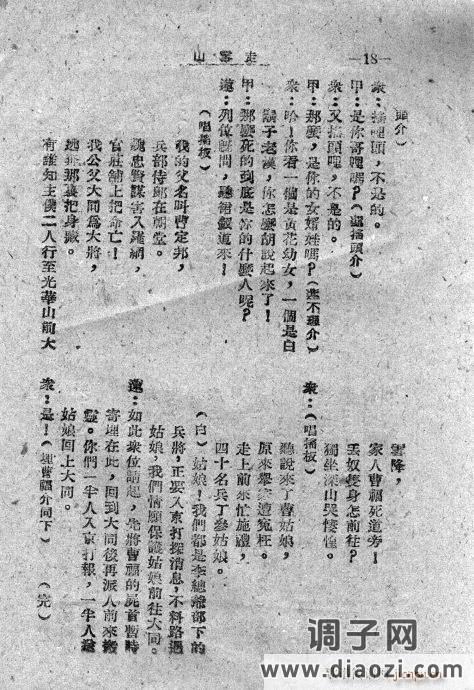 —18—
走雪山
頭介）
衆：搖哩頭，不是的。
甲：是你哥哩嗎？（蓮搖頭介）
衆：又搖頭哩，不是的。
甲：那麼，是你的女婿娃嗎？（蓮不理介）
衆：哈！你看一個是黃花幼女，一個是白
鬍子老漢，你怎麼胡說起來了！
甲：那麼死的到底是你的什麼人呢？
蓮：列位請問，聽俺敘道來！
（唱搖板）
我的父名叫曹定邦，
兵部侍郎在朝堂。
魏忠賢謀害入羅網，
官莊舖上把命亡！
我公父大同爲大將，
逃難那裏把身藏。
有誰知主僕二人行至光華山前大
雪降，
家人曹福死道旁！
丟奴隻身怎前往？
獨坐深山哭悽惶。
衆：（唱搖板）
聽說來了曹姑娘，
原來舉家遭冤枉。
走上前來忙施禮，
四十名兵丁參姑娘。
（白）姑娘！我們都是李總爺部下的
兵將，正要入京打探消息，不料路遇
姑娘，我們情願保護姑娘前往大同。
蓮：如此衆位請起，先將曹福的屍首暫時
寄埋在此，回到大同後再派人前來搬
靈。你們一半人入京打報，一半人送
姑娘回上大同。
衆：是！（埋曹福介同下）
（完）
调子网
www.diaozi.com